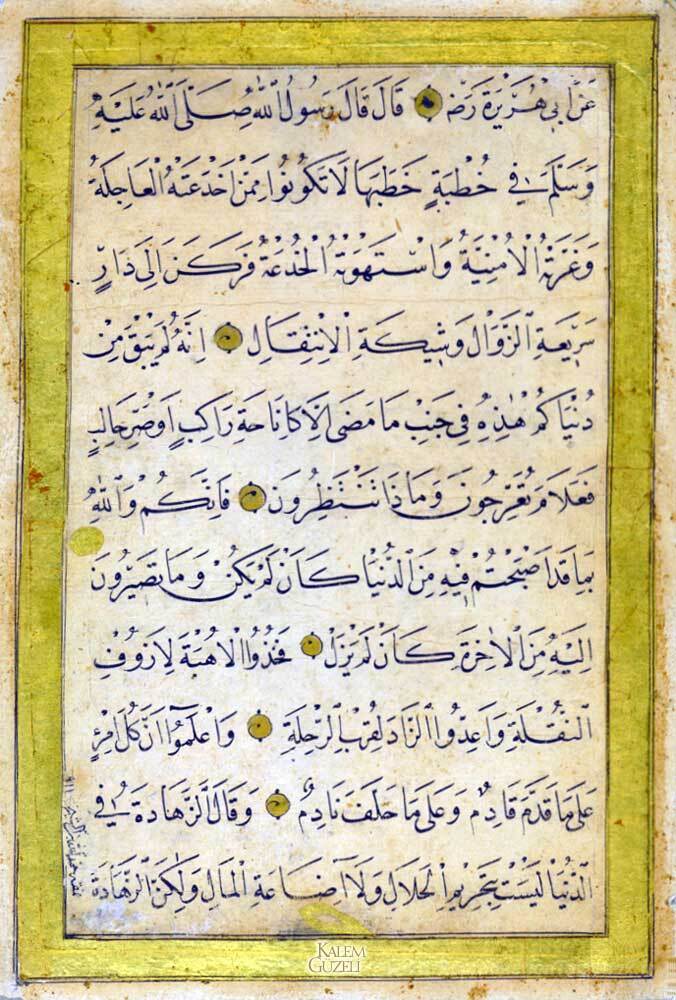 عَنْ اَبِي هُرَيْرَةَ رَضِ قَالَ قَالَ رَسُولُ اللّٰهِ صَلَّى اللّٰهُ عَلَيْهِ
وَسَلَّمَ فِي خُطْبَةٍ خَطَبَهَا لَا تَكُونُوا مِمَّنْ اخْدَعَتْهُ الْعَاجِلَةُ
وَغَرَّتْهُ الْاُمْنِيَّةُ وَاسْتَهْوَتْهُ الْخُدْعَةُ فَرَكَنَ اِلَى دَارٍ
سَرِيعَةِ الزَّوَالِ وَشِيكَةِ الْاِنْتِقَالِ اِنَّهُ لَمْ يَبْقَ مِنْ
دُنْيَاكُمْ هٰذِهِ فِي جَنْبِ مَا مَضَى اِلَّا كَاِنَاحَةِ رَاكِبٍ اَوْ صَرِّ حَالِبٍ
فَعَلَامَ تُعَرِّجُونَ وَمَاذَا تَنْتَظِرُونَ فَاِنَّكُمْ وَاللّٰهِ
بِمَا قَدْ اَصْبَحْتُمْ فِيهِ مِنَ الدُّنْيَا كَاَنْ لَمْ يَكُنْ وَمَا تَصِيرُونَ
اِلَيْهِ مِنَ الْاٰخِرَةِ كَاَنْ لَمْ يَزَلْ فَخُذُوا الْاُهْبَةَ لِاَزُوفِ
النُّقْلَةِ وَاَعِدُّوا الزَّادَ لِقُرْبِ الرِّحْلَةِ وَاعْلَمُوا اَنَّ كُلَّ امْرِئٍ
عَلَى مَا قَدَّمَ قَادِمٌ وَعَلَى مَا خَلَفَ نَادِمٌ وَقَالَ الزَّهَادَةُ فِي
الدُّنْيَا لَيْسَتْ بِتَحْرِيمِ الْحَلَالِ وَلَا اِضَاعَةِ الْمَالِ وَلٰكِنَّ الزَّهَادَةَ
KALEM
GÜZELİ